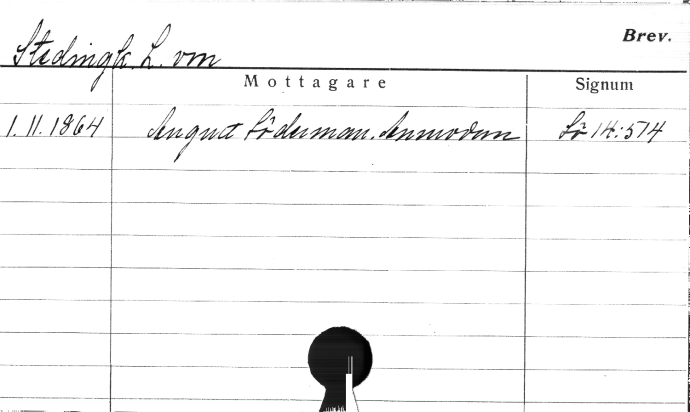 Brev.
Stedingk. L. von
Mottagare Signum
1.11.1864 August Söderman. Anmodan Sö 14:574